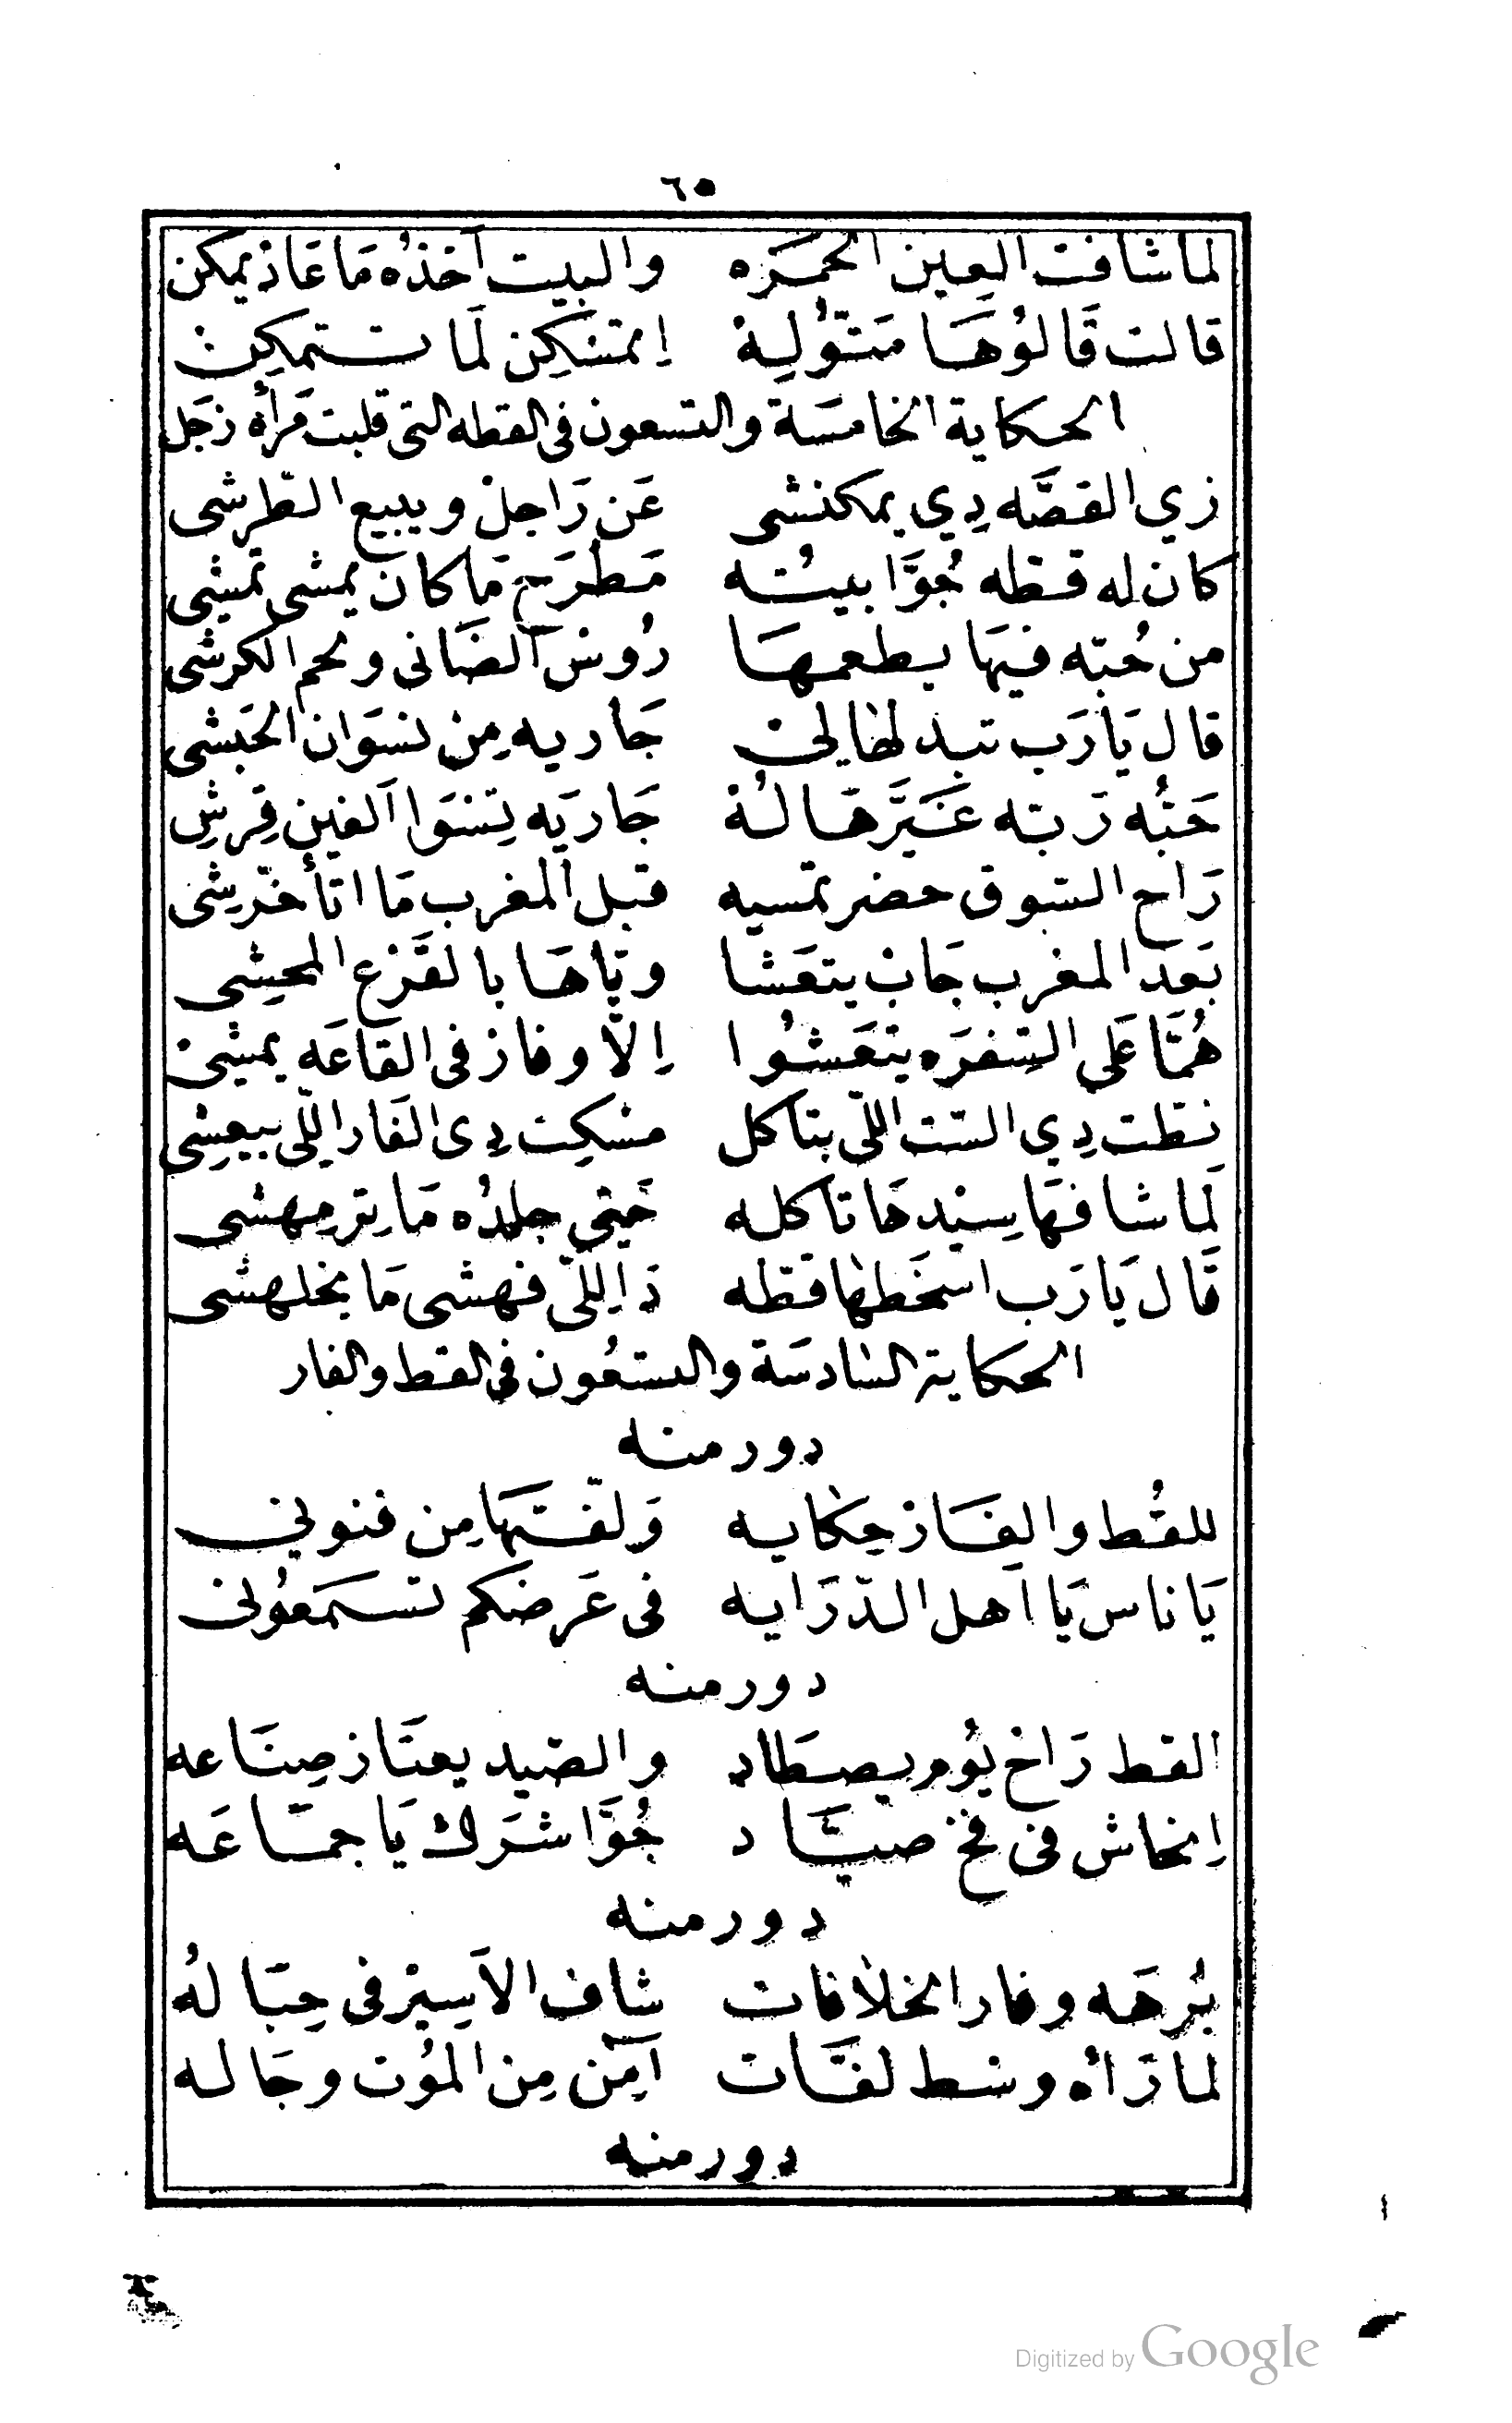 ٦٥
لما شافت العين الحمَرَه والبيت اخذُه مَا عَادْ يمكن
قالت قَالوُهَا مَتوُلِهْ اِتمَسْكِن لَمَا تستمكِنْ
الحكاية الخامسَة والتسعون فى القطه التى قلبت مَرأه زجَل
زي القصَّه دِي يمكنشى عَن رَاجلْ ويبيع الطّرشى
كان له قطه جُوَّا بيتُه مَطرَح مَا كان يمشى تمشِى
من حُبّه فيهَا يطعمهَا رُوسْ الضَانى ولحم الكرشى
قال يَا رَب تبدلهَا لىْ جَاريه مِنْ نسوَان الحَبَشى
حَبُّه رَبّه غَيَّرهَا لُهْ جَاريَه تِسْوَا اَلفين قِرشِ
رَاح السّوق حضر تمسيه قبل المغرب مَا اتأخّرشِى
بَعدَ المغرب جَانْ يتعَشا ويَّاهَا بالقَرْع المحِشِى
هُمَّا عَلَى السّفرَه يتعَشوُا اِلاّ وفارْ فى القَاعَه يمشِىْ
نطّت دِي السّت اللّى بتاكل مسْكِت دِى الفَار اللّى بيعِشِى
لَما شافهَا سِيْدهَا تاكله حَتى جلدُه مَا ترمِهشى
قَال يَا رَب اسْخَطهَا قطّه دَا اِللّى فهشى مَا يخلهشى
الحكاية السَّادسَة والتسعُون فى القط والفار
دور منه
للقُط والفَارْ حِكايه وَلّفتهَا مِن فنونىْ
يَا ناس يَا اَهل الدّرَايه فى عَرضكم تسمَعُونىْ
دور منه
القط رَاحْ يُوم يصطَاد والصّيد يعتَازْ صِنَاعه
اِنحاش فى فخ صيَّاد جُوَّا شرَكْ يَا جمَاعَه
دور منه
بُرهَه وفار الخلافات شاف الاَسِيرْ فى حِبَالهُ
لما رَأه وسْط لفَّات اَمِن مِن المُوت وجَاله
دور منه
Digitized by Google